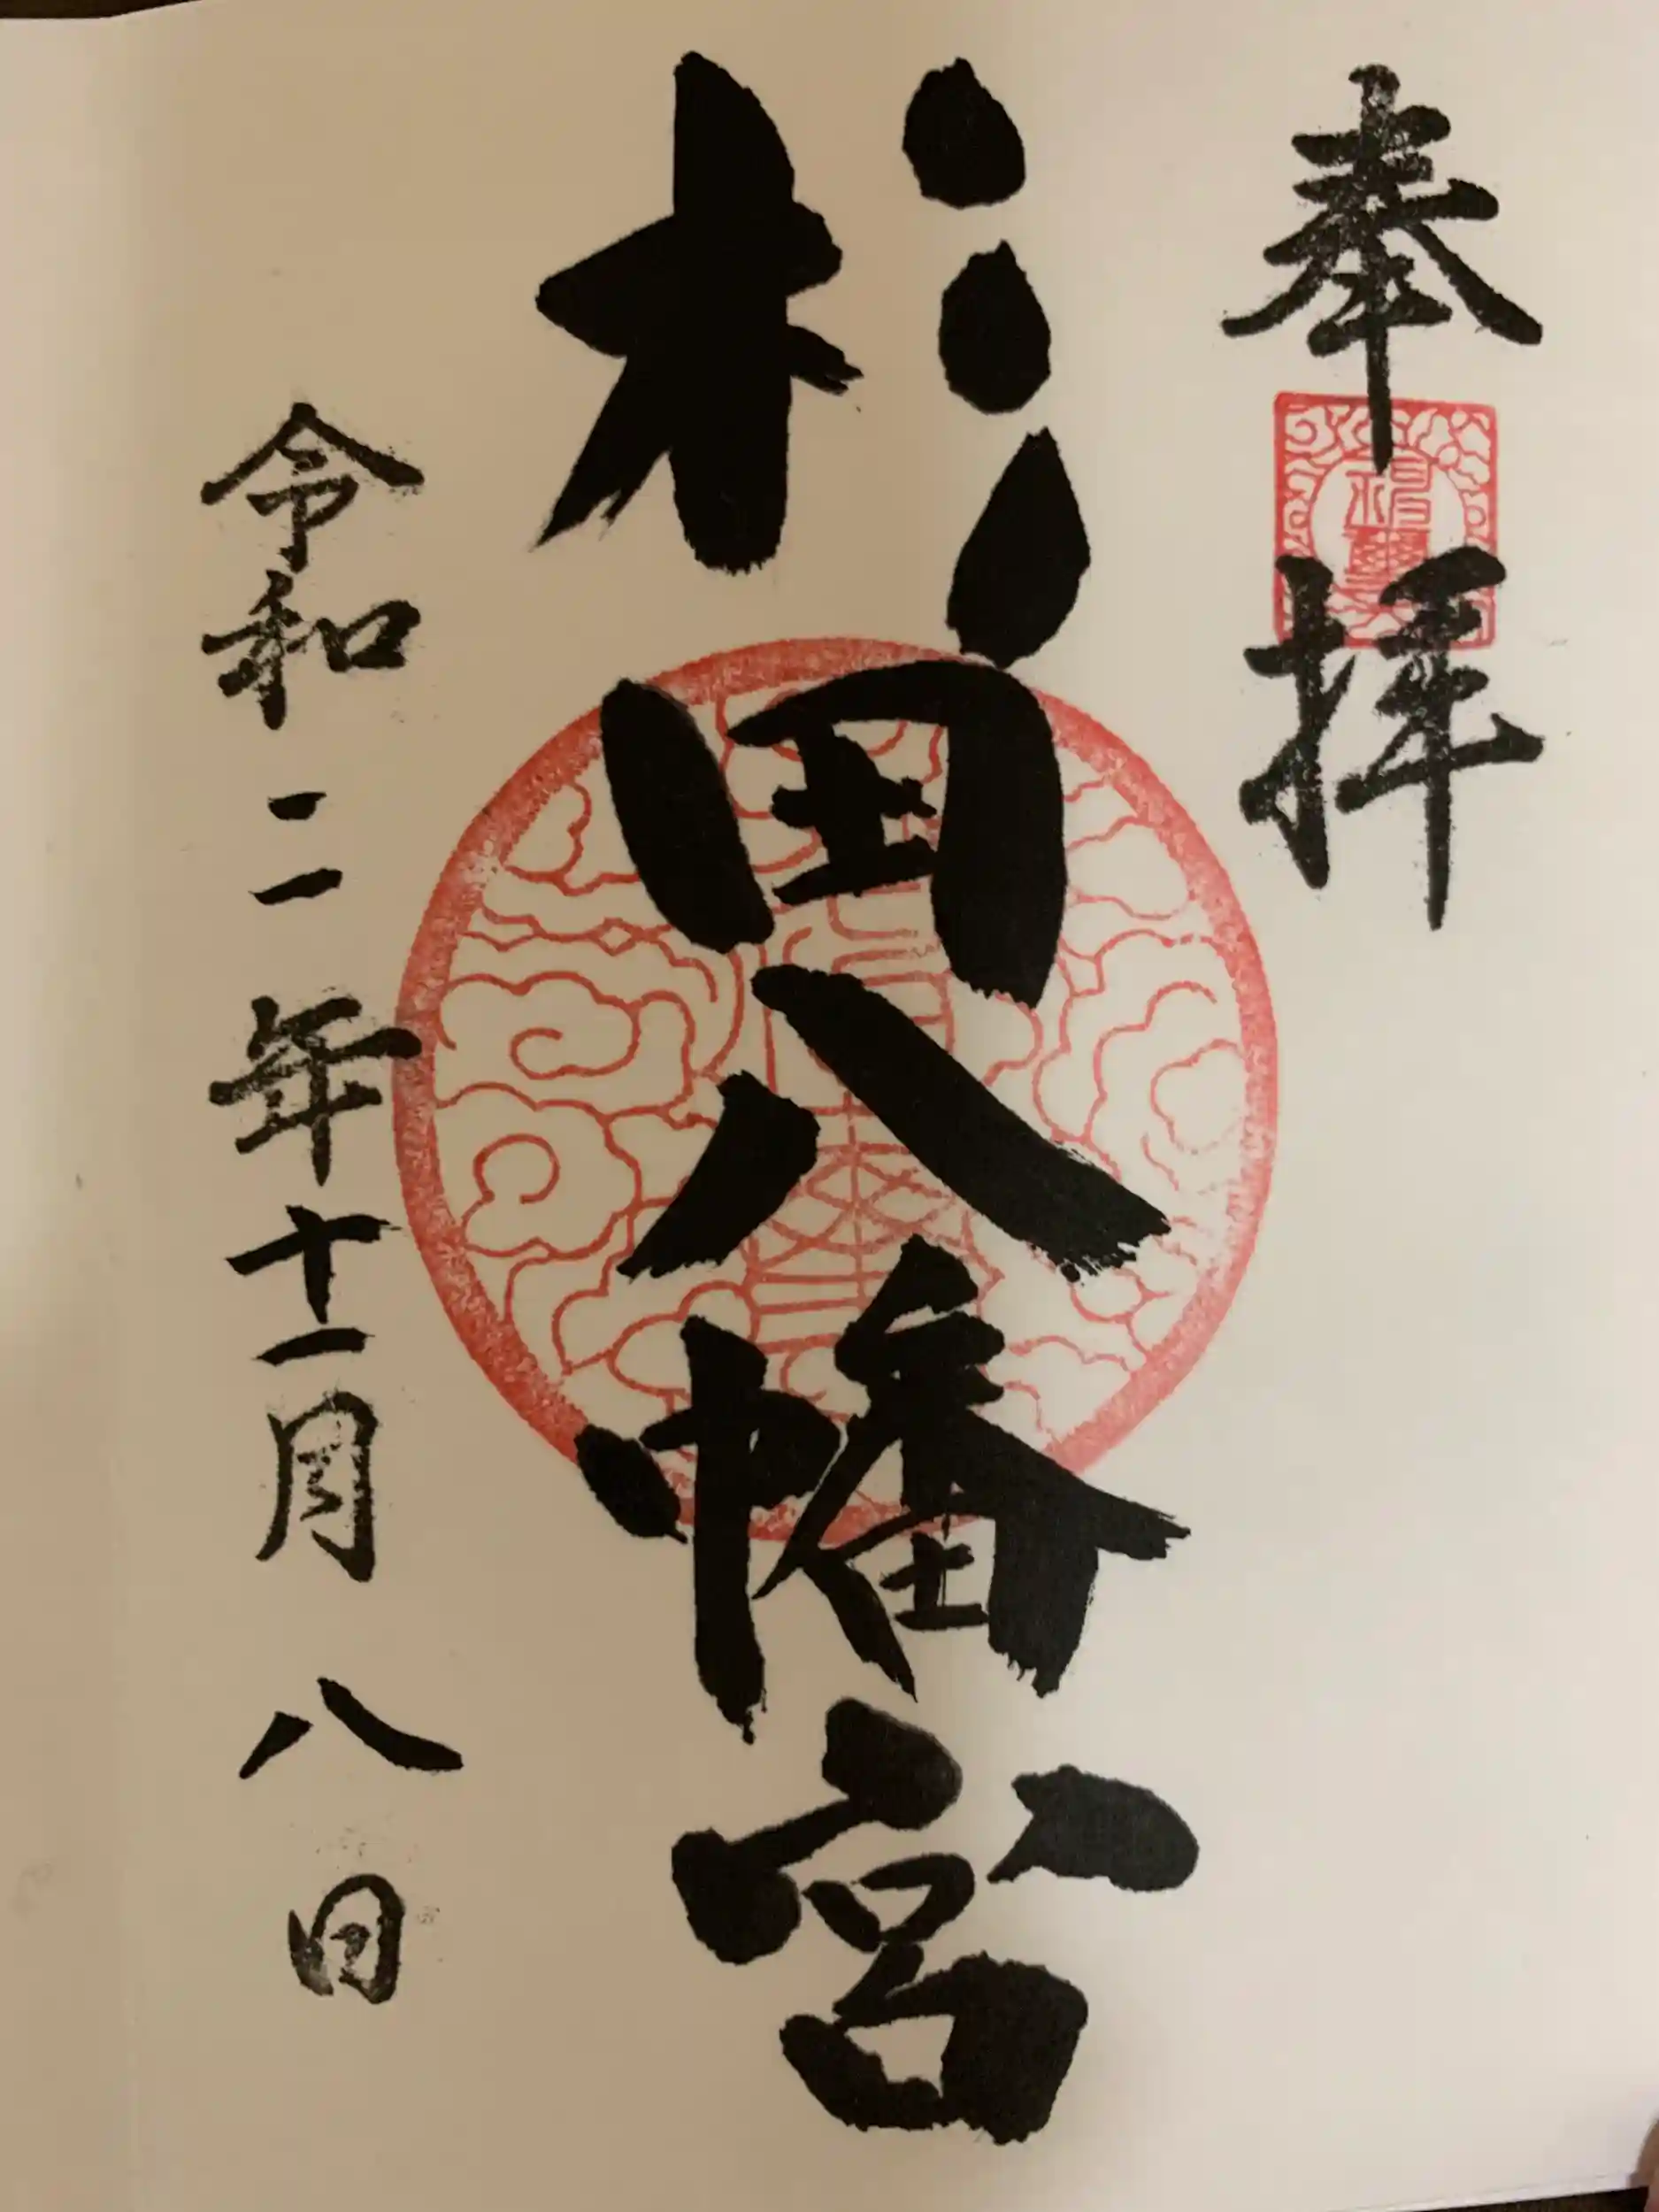 奉拝
杉田八幡宮
令和二年十一月八日